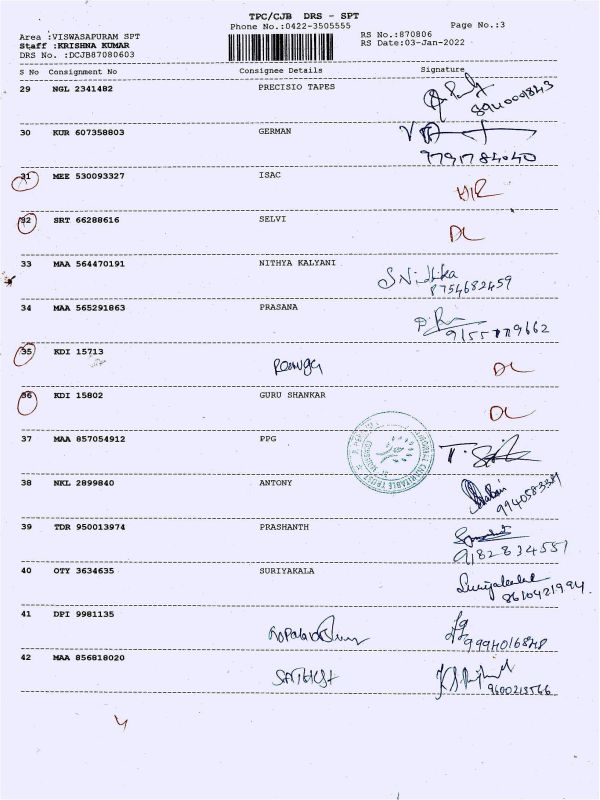 TPC/CJB DRS - SPT
Phone No.:0422-3505555
Page No.:3
Area :VISWASAPURAM SPT
Staff :KRISHNA KUMAR
DRS No. :DCJB87080603
RS No.:870806
RS Date:03-Jan-2022
S No Consignment No Consignee Details Signature
29 NGL 2341482 PRECISIO TAPES
30 KUR 607358803 GERMAN
9791784040
31 MEE 530093327 ISAC
32 SRT 66288616 SELVI DL
33 MAA 564470191 NITHYA KALYANI S Nidhika
8754682459
34 MAA 565291863 PRASANA
35 KDI 15713 DL
36 KDI 15802 GURU SHANKAR DL
37 MAA 857054912 PPG
38 NKL 2899840 ANTONY
39 TDR 950013974 PRASHANTH
9182834557
40 OTY 3634635 SURIYAKALA Suriyakala
8610421994
41 DPI 9981135
9994016848
42 MAA 856818020
9600213566
4